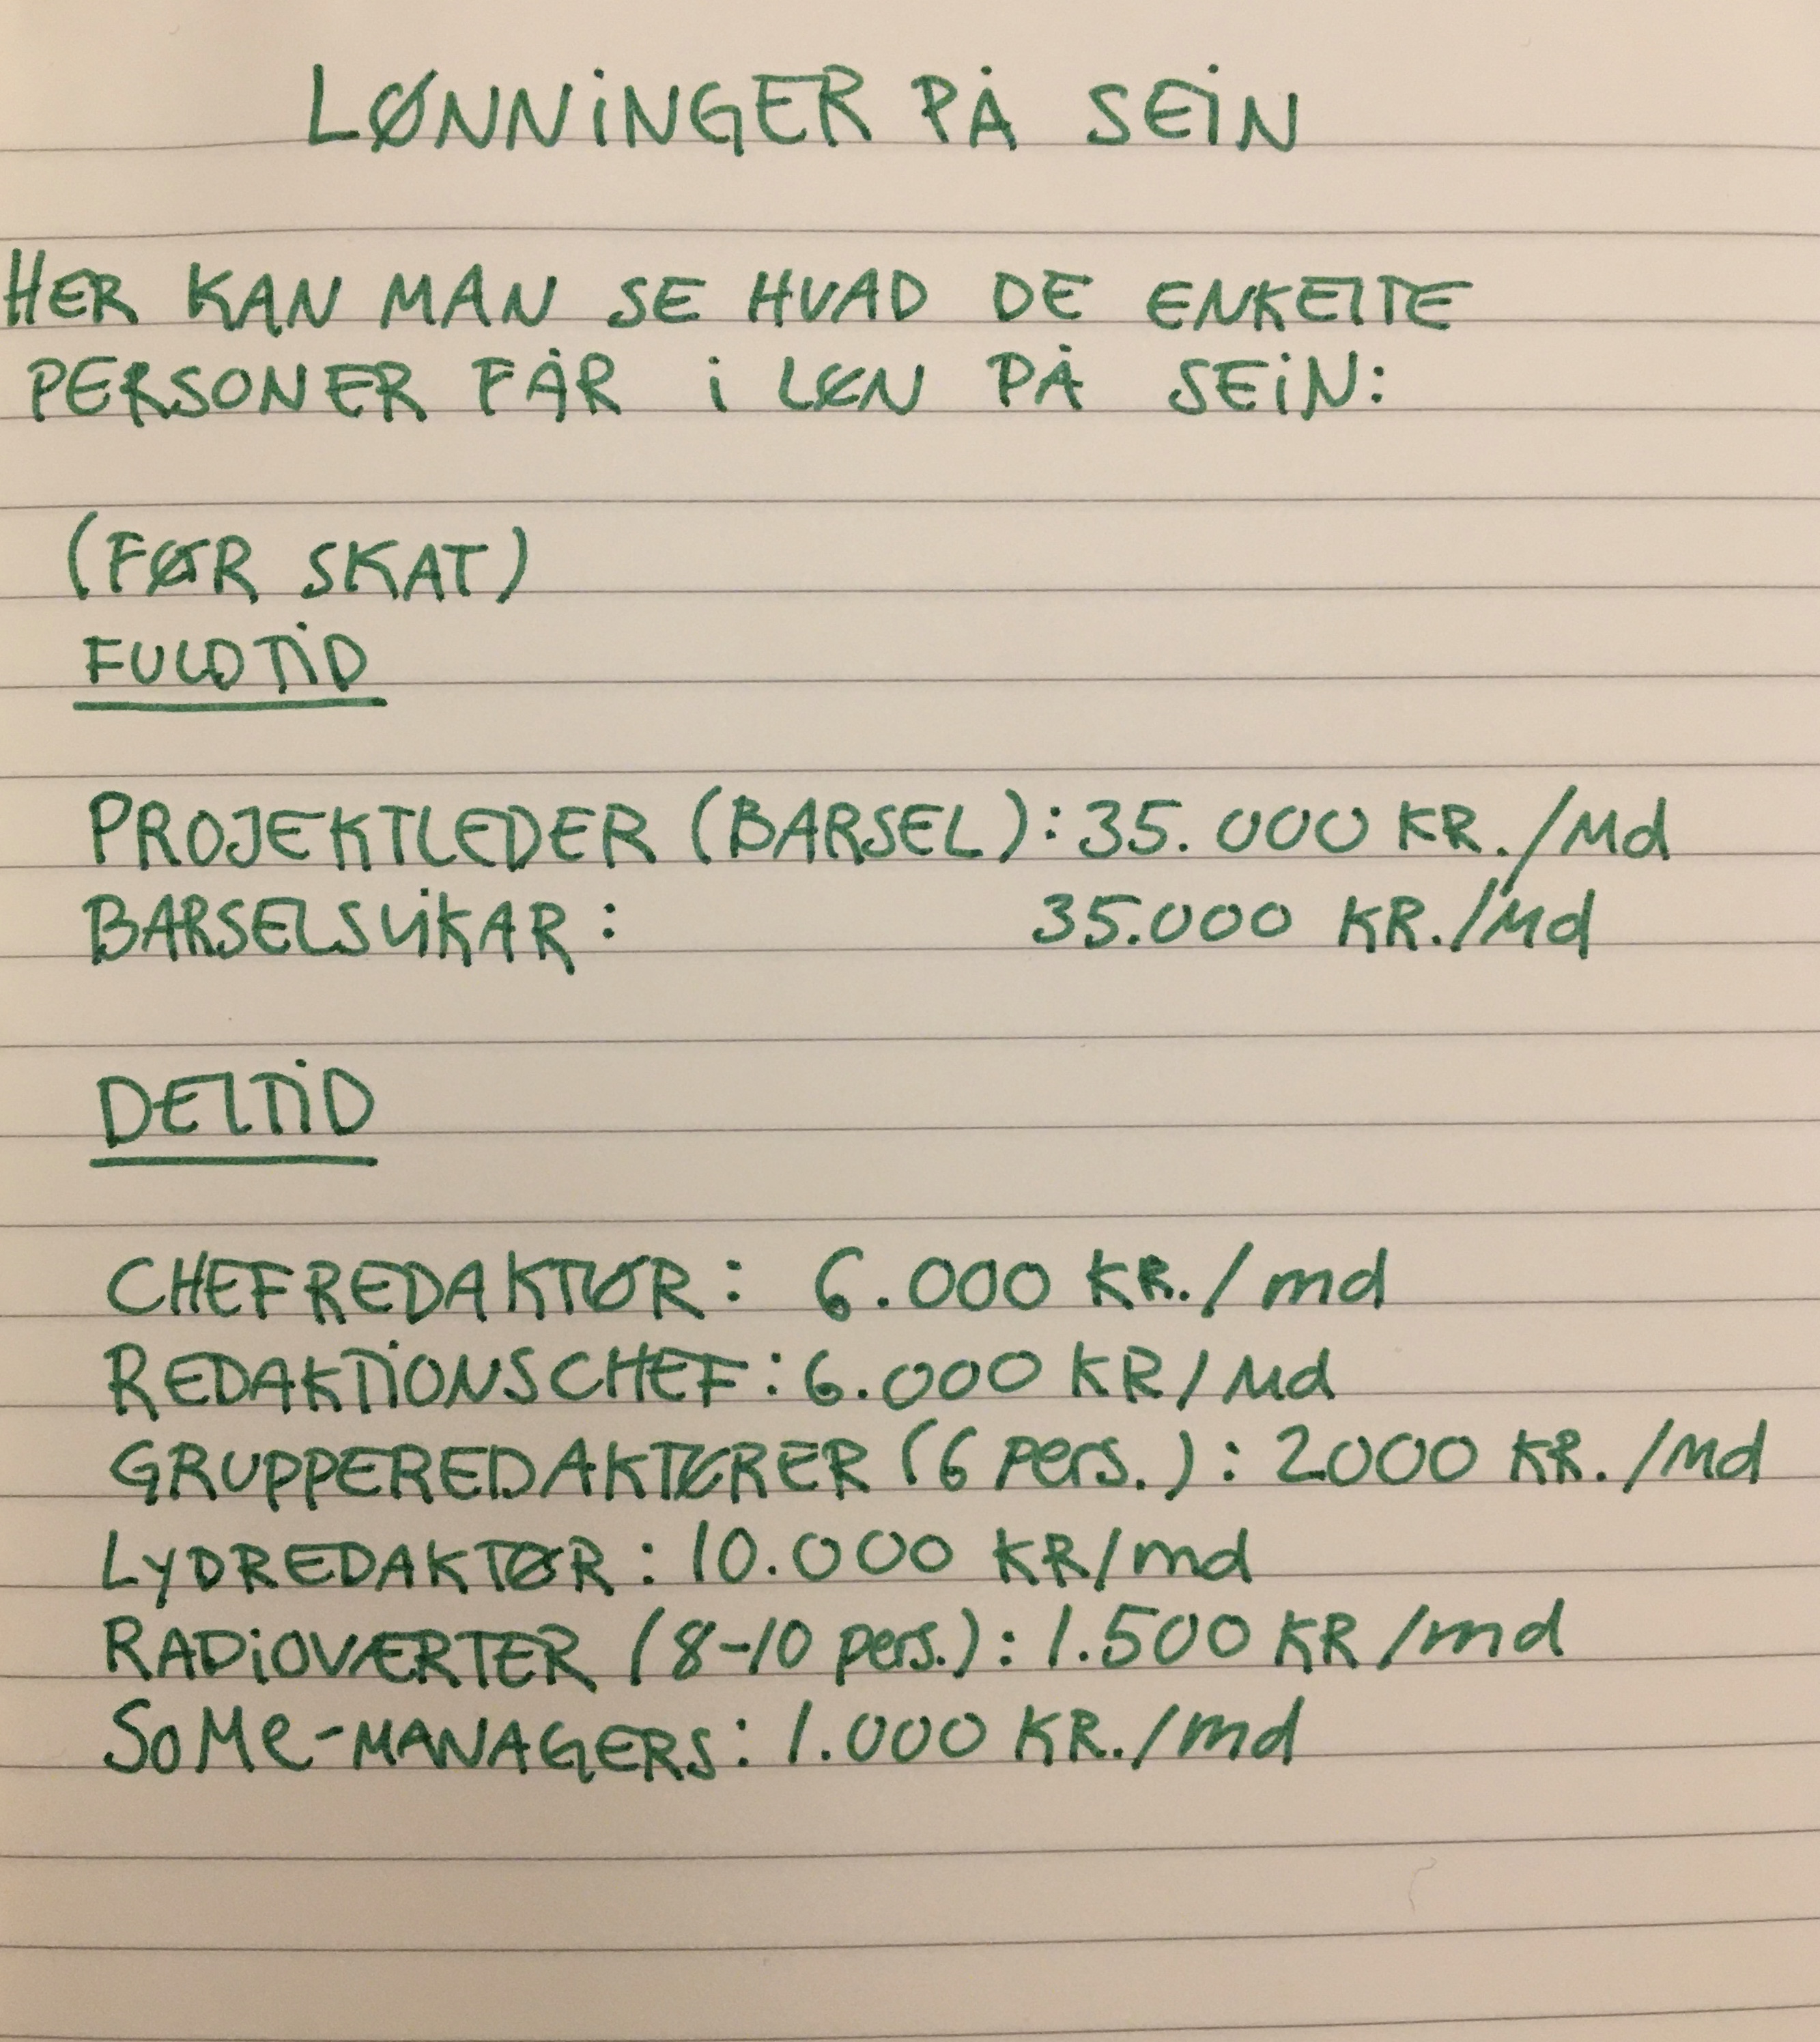 LØNNINGER PÅ SEIN
HER KAN MAN SE HVAD DE ENKELTE
PERSONER FÅR I LØN PÅ SEIN:
(FØR SKAT)
FULDTID
PROJEKTLEDER (BARSEL): 35.000 KR./Md
BARSELSVIKAR: 35.000 KR./Md
DELTID
CHEFREDAKTØR: 6.000 KR./md
REDAKTIONSCHEF: 6.000 KR/Md
GRUPPEREDAKTØRER (6 pers.): 2000 KR./Md
LYDREDAKTØR: 10.000 KR/md
RADIOVÆRTER (8-10 pers.): 1.500 KR/md
SoMe-MANAGERS: 1.000 KR./md